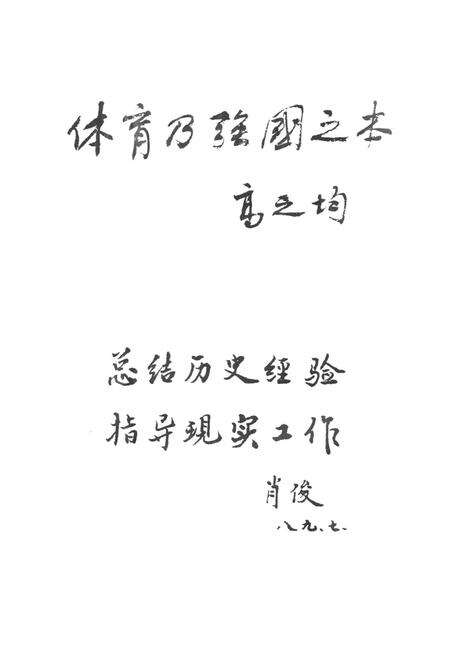 体育乃强國之本
高之均
总结历史经验
指导現实工作
肖俊
八九.七.